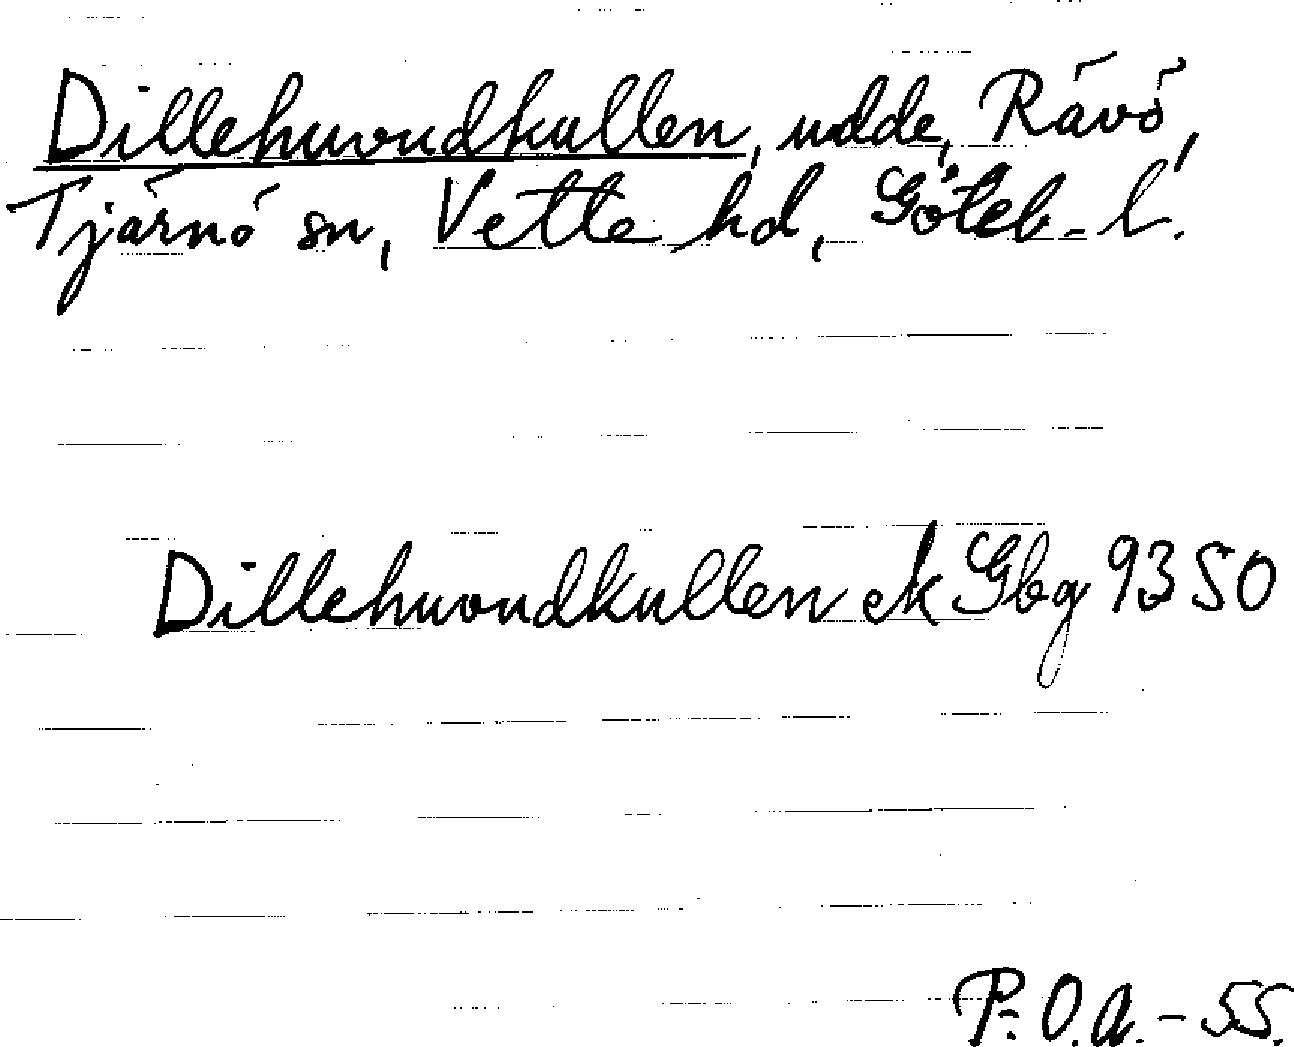 Dillehuvudkullen, udde, Rävö,
Tjärnö sn, Vette hd, Göteb. l.
Dillehuvudkullen ek Gbg 9350
P.O.A.-55.